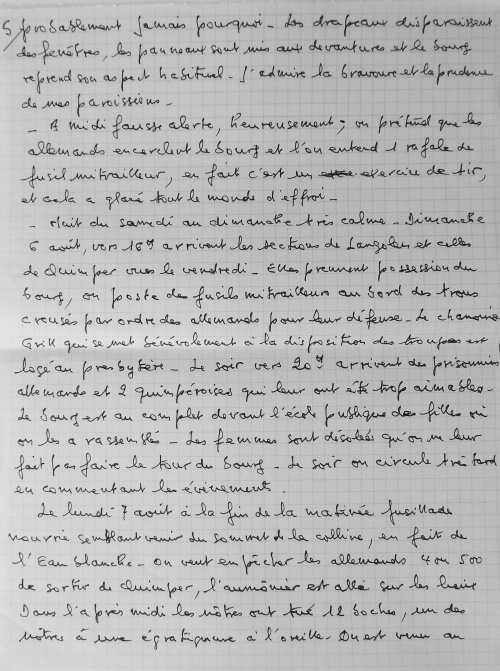 5/ probablement jamais pourquoi - Les drapeaux disparaissent
des fenêtres, les panneaux sont mis aux devantures et le bourg
reprend son aspect habituel - J'admire la bravoure et la prudence
de mes paroissiens -
- A midi fausse alerte, heureusement ; on prétend que les
allemands encerclent le bourg et l'on entend 1 rafale de
fusil mitrailleur, en fait c'est un exercice de tir,
et cela a glacé tout le monde d'effroi -
- Nuit du samedi au dimanche très calme - Dimanche
6 août, vers 16h arrivent les sections de Langolen et celles
de Quimper vues le vendredi - Elles prennent possession du
bourg, on poste des fusils mitrailleurs au bord des trous
creusés par ordre des allemands pour leur défense - Le chanoine
Grill qui se met bénévolement à la disposition des troupes est
logé au presbytère - Le soir vers 20h arrivent des prisonniers
allemands et 2 quimpéroises qui leur ont été trop aimables -
Le bourg est au complet devant l'école publique des filles où
on les a rassemblés - Les femmes sont désolées qu'on ne leur
fait pas faire le tour du bourg - Le soir on circule très tard
en commentant les évènements.
Le lundi 7 août à la fin de la matinée fusillade
nourrie semblant venir du sommet de la colline, en fait de
l'Eau blanche - On veut empêcher les allemands 4 ou 500
de sortir de Quimper, l'aumônier est allé sur les lieux
Dans l'après midi les nôtres ont tué 12 boches, un des
nôtres a une égratignure à l'oreille - On est venu au